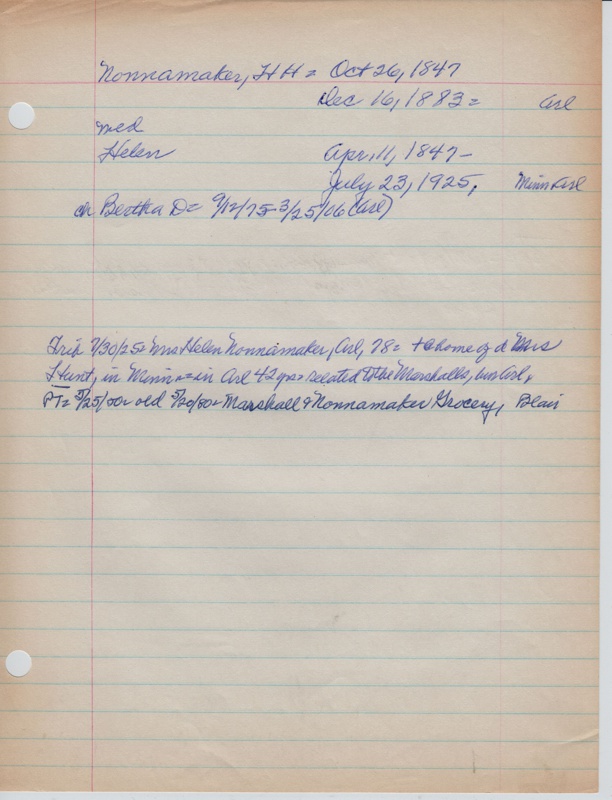 Nonnamaker, H H = Oct 26, 1847
Dec 16, 1883 = Arl
med
Helen Apr. 11, 1847 –
July 23, 1925, Minn Arl
ch Bertha D = 9/12/75 - 3/25/06 (Arl)
Trib 7/30/25 = Mrs Helen Nonnamaker, Arl, 78 = + @ home of d Mrs
Hunt, in Minn = in Arl 42 yrs = related to the Marshalls, bur Arl.
PT = 5/25/00 = old 5/20/80 = Marshall & Nonnamaker Grocery, Blair